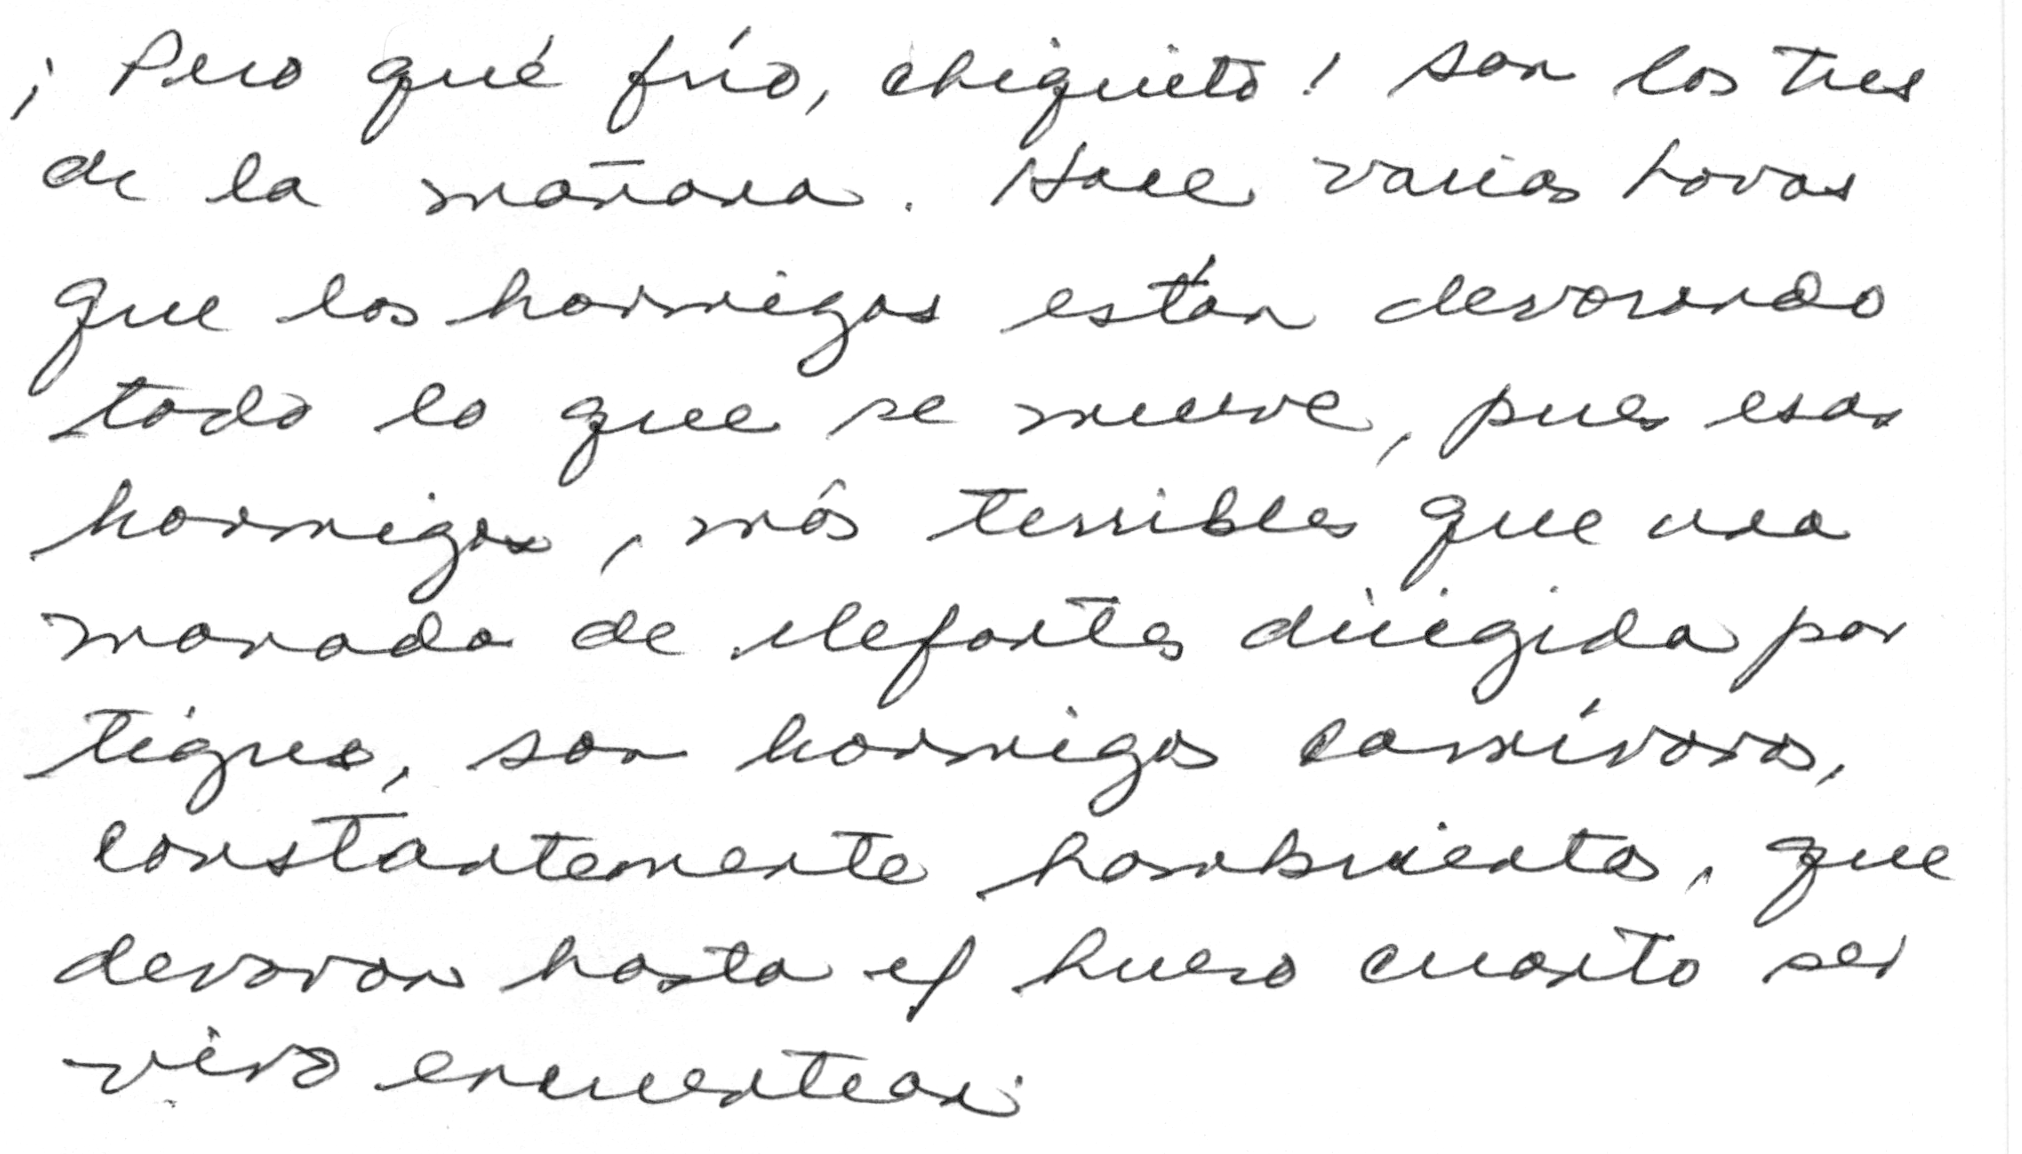 ¡Pero qué frío, chiquito! Son las tres
de la mañana. Hace varias horas
que las hormigas están devorando
todo lo que se mueve, pues esas
hormigas, más terribles que una
manada de elefantes dirigida por
tigres, son hormigas carnívoras,
constantemente hambrientas, que
devoran hasta el hueso cuanto ser
vivo encuentran.